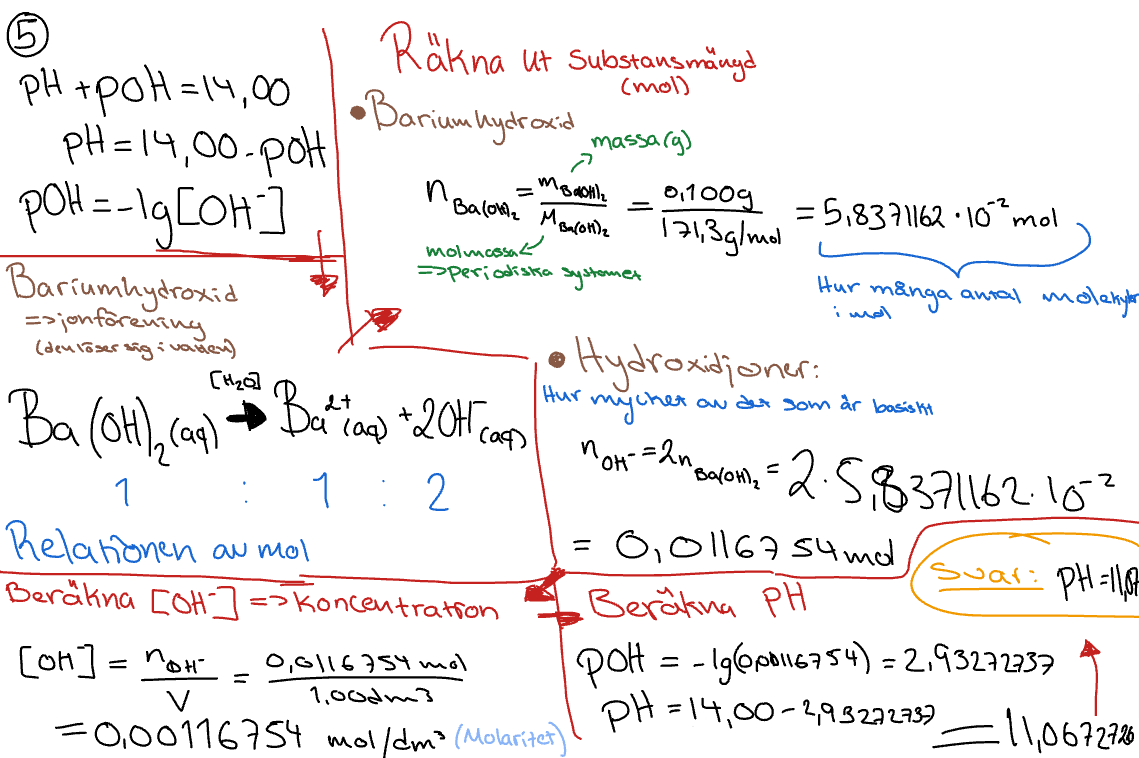 5
pH + pOH = 14,00
pH = 14,00 - pOH
pOH = -lg[OH⁻]
Räkna ut Substansmängd
(mol)
• Bariumhydroxid
massa(g)
n Ba(OH)₂ = m Ba(OH)₂ / M Ba(OH)₂ = 0,100g / 171,3g/mol = 5,8371162 · 10⁻² mol
molmassa
=> Periodiska systemet
Hur många antal molekyl
i mol
Bariumhydroxid
=> jonförening
(den löser sig i vatten)
[H₂O]
Ba(OH)₂(aq) → Ba²⁺(aq) + 2OH⁻(aq)
1 : 1 : 2
Relationen av mol
• Hydroxidjoner:
Hur mycket av det som är basiskt
n OH⁻ = 2n Ba(OH)₂ = 2 · 5,8371162 · 10⁻²
= 0,0116754 mol
Svar: pH = 11,07
Beräkna [OH⁻] => Koncentration
[OH⁻] = n OH⁻ / V = 0,0116754 mol / 1,00dm³
= 0,00116754 mol/dm³ (Molaritet)
Beräkna pH
pOH = -lg(0,00116754) = 2,93272737
pH = 14,00 - 2,93272737 = 11,0672726